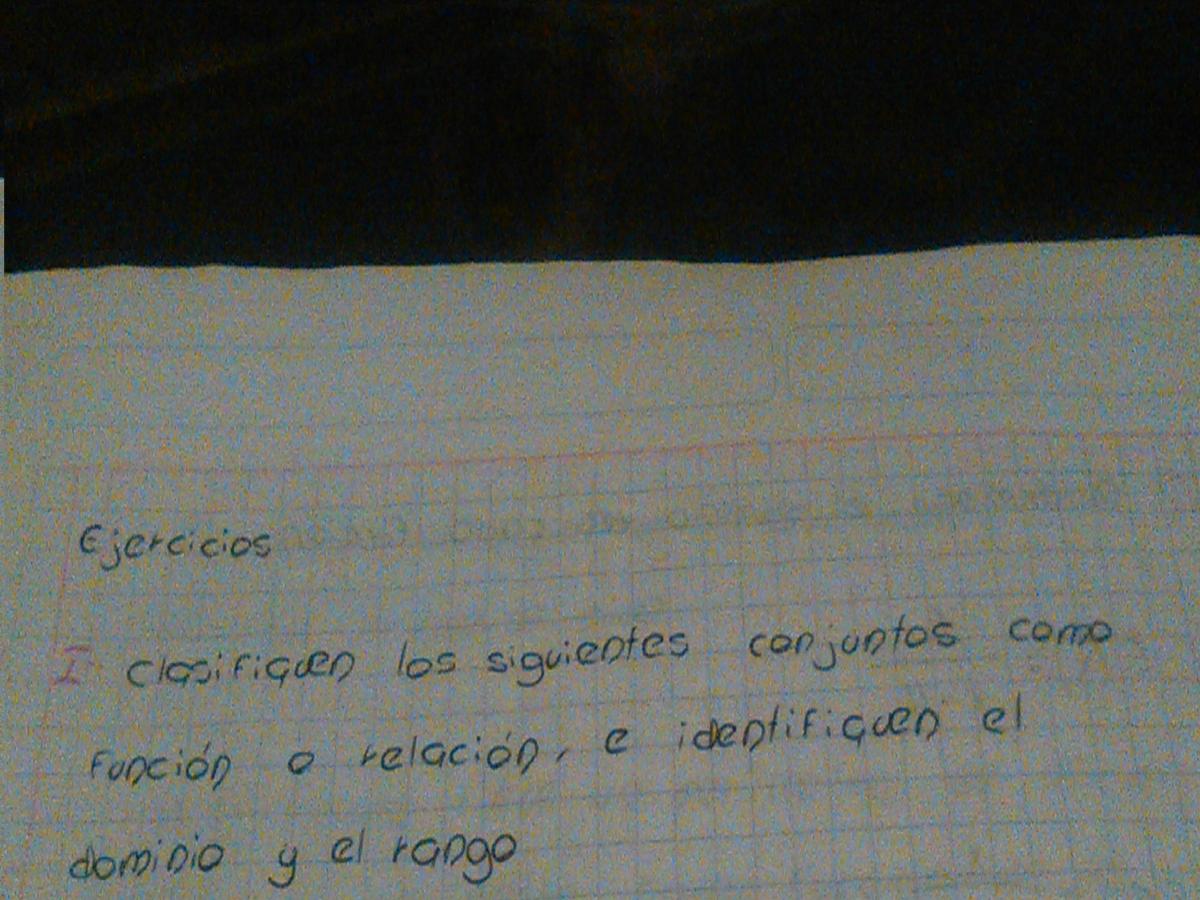 Ejercicios
I Clasifiquen los siguientes conjuntos como
función o relación, e identifiquen el
dominio y el rango